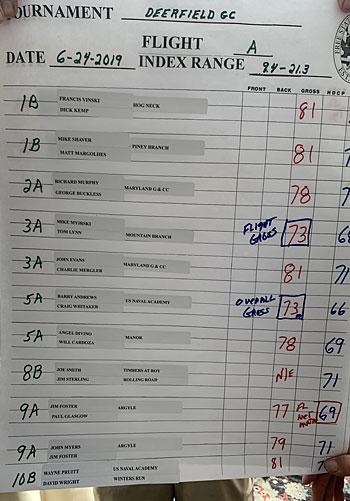 TOURNAMENT DEERFIELD GC
FLIGHT A
DATE 6-24-2019 INDEX RANGE 9.4-21.3
FRONT BACK GROSS HDCP
1B FRANCIS VINSKI HOG NECK 81
DICK KEMP
1B MIKE SHAVER PINEY BRANCH 81
MATT MARGOLIIES
2A RICHARD MURPHY MARYLAND G & CC 78
GEORGE BUCKLESS
3A MIKE MYIRSKI FLIGHT GROSS 73
TOM LYNN MOUNTAIN BRANCH
3A JOHN EVANS MARYLAND G & CC 81 71
CHARLIE MERGLER
5A BARRY ANDREWS US NAVAL ACADEMY OVERALL GROSS 73 66
CRAIG WHITAKER
5A ANGEL DIVINO MANOR 78 69
WILL CARDOZA
8B JOE SMITH TIMBERS AT ROY 71
JIM STERLING ROLLING ROAD
9A JIM FOSTER ARGYLE 77 69
PAUL GLASGOW
9A JOHN MYERS ARGYLE 79 71
JIM FOSTER
10B WAYNE PRUITT US NAVAL ACADEMY 81
DAVID WRIGHT WINTERS RUN